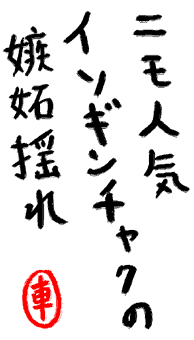 ニモ人気
イソギンチャクの
嫉妬揺れ
車